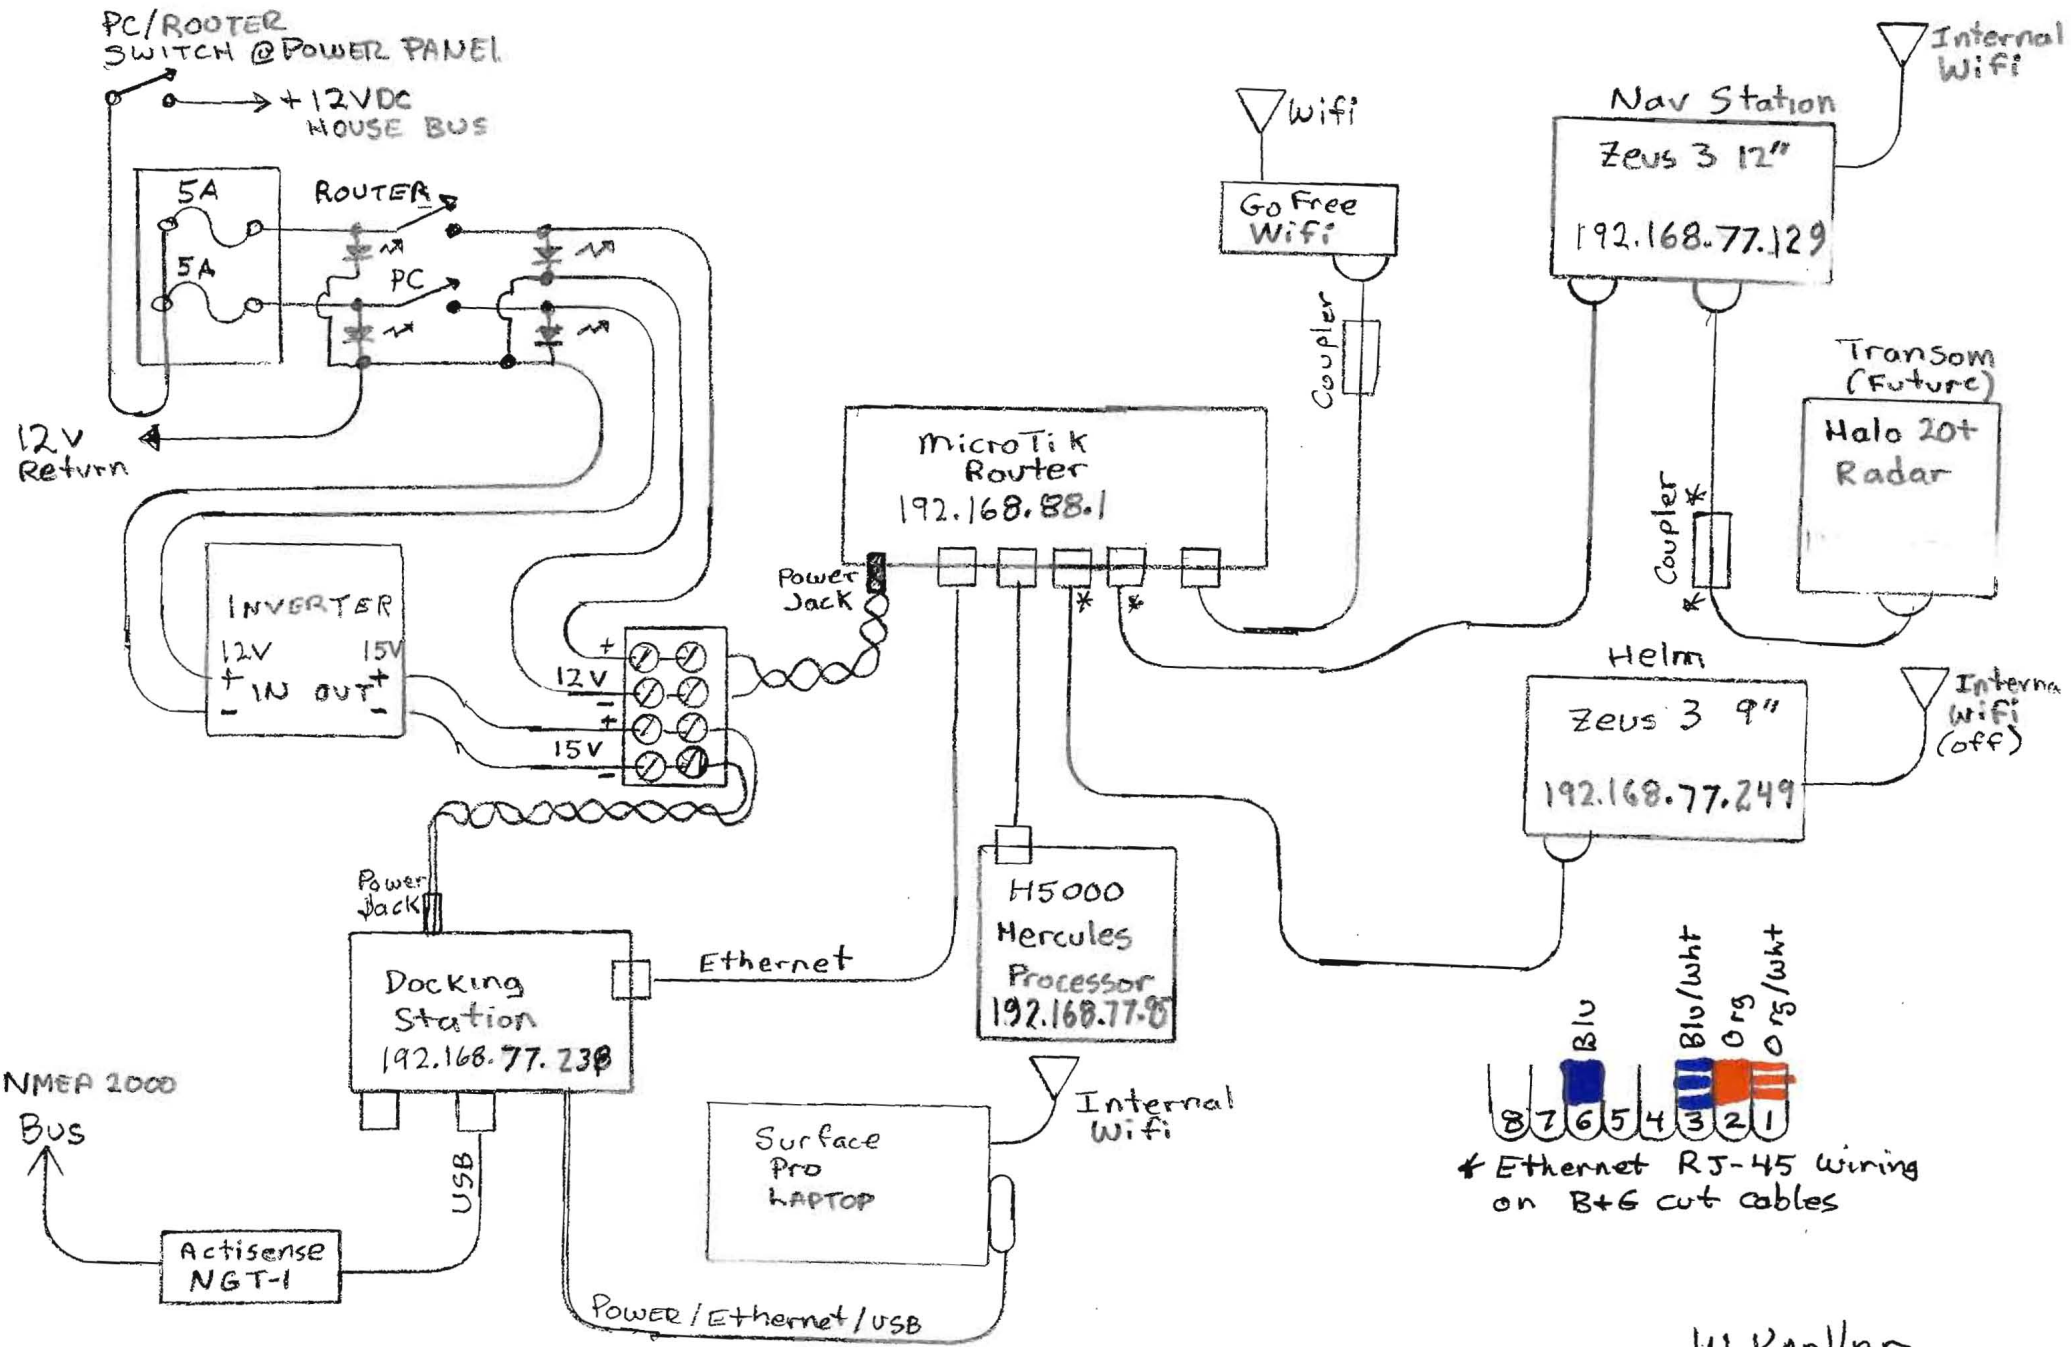 PC/ROUTER
SWITCH @ POWER PANEL
+12VDC
HOUSE BUS
5A
ROUTER
5A
PC
12V
Return
INVERTER
12V
15V
+
+
IN OUT
-
-
+
12V
-
+
15V
-
Power
Jack
MicroTik
Router
192.168.88.1
Power
Jack
*
*
Wifi
Go Free
Wifi
Coupler
Nav Station
Zeus 3 12"
192.168.77.129
Internal
Wifi
Transom
(Future)
Halo 20+
Radar
Coupler
*
*
Helm
Zeus 3 9"
192.168.77.249
Interna
Wifi
(off)
H5000
Hercules
Processor
192.168.77.
Docking
Station
192.168.77.
Ethernet
NMEA 2000
Bus
USB
Actisense
NGT-1
Surface
Pro
LAPTOP
Internal
Wifi
POWER/Ethernet/USB
Blu
Blu/Wht
Org
Org/Wht
8 7 6 5 4 3 2 1
* Ethernet RJ-45 wiring
on B+G cut cables